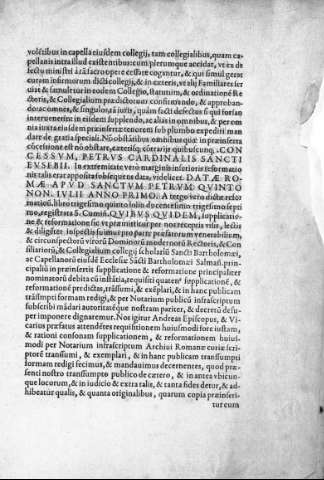 volētibus in capella eiusdem collegij, tam collegialibus, quam ca-
pellanis intra illud existentibus cum plerumque accidat, vt ex de
fectu ministri à sacro opere cessare cogantur, & qui simul gerat
curam infirmorum dicti Collegij, & in exteris, vt alij Familiares ser
uiat & famuletur in eodem Collegio, statutum, & ordinationē Re
ctoris, & Collegialium prædictorum confirmando, & approban-
do ac omnes, & singulos, tā iuris, quàm facti defectus si qui forsan
interuenerint in eisdem supplendo, ac aliàs in omnibus, & per om
nia iuxta eiusdem præinsertæ tenorem sub plumbo expediri man
dare de gratia speciali. Nō obstātibus omnibus quæ in præinserta
cōcessione est nō obstare, cæterisq; cōtrarijs quibuscunq;. CON
CESSVM, PETRVS CARDINALIS SANCTI
EVSEBII. In extremitate verò marginis inferioris reformatio
nis talis erat apposita subsequēs data, videlicet. DATÆ RO-
MÆ APVD SANCTVM PETRVM QVINTO
NON. IVLII ANNO PRIMO. A tergo verò dictæ refor
mationis. libro trigesimo quinto folio ducentesimo trigesimo septi
mo, registrata S. Cumiñ. QVIBVS QVIDEM, supplicatio-
ne & reformatione sic vt præmittitur per nos receptis visis, lectis
& diligēter inspectis fuimus pro parte præfatorum venerabilium,
& circunspectorū virorū Dominorū modernorū Rectoris, & Con
siliariorū, & Collegialium collegij scholariū Sancti Bartholomæi,
ac Capellanorū eiusdē Ecclesiæ Sācti Bartholomæi Salmāt. prin-
cipaliū in præinsertis supplicatione & reformatione principaliter
nominatorū debita cū instātia, requisiti quatenᵒ supplicationē, &
reformationē prædictas, trāssumi, & exēplari, & in hanc publicam
trāssumpti formam redigi, & per Notarium publicū infrascriptum
subscribi mādari autoritatēque nostram pariter, & decretū desu-
per imponere dignaremur. Nos igitur Andreas Episcopus, & Vi-
carius præfatus attendētes requisitionem huiusmodi fore iustam,
& rationi consonam supplicationem, & reformationem huius-
modi per Notarium infrascriptum Archiui Romanæ curiæ scri-
ptorē transsumi, & exemplari, & in hanc publicam transsumpti
formam redigi fecimus, & mandauimus decernentes, quod præ-
senti nostro transsumpto publico de cætero, & in antea vbicun-
que locorum, & in iudicio & extra talis, & tanta fides detur, & ad-
hibeatur qualis, & quanta originalibus, quarum copia præinseri-
tur cum